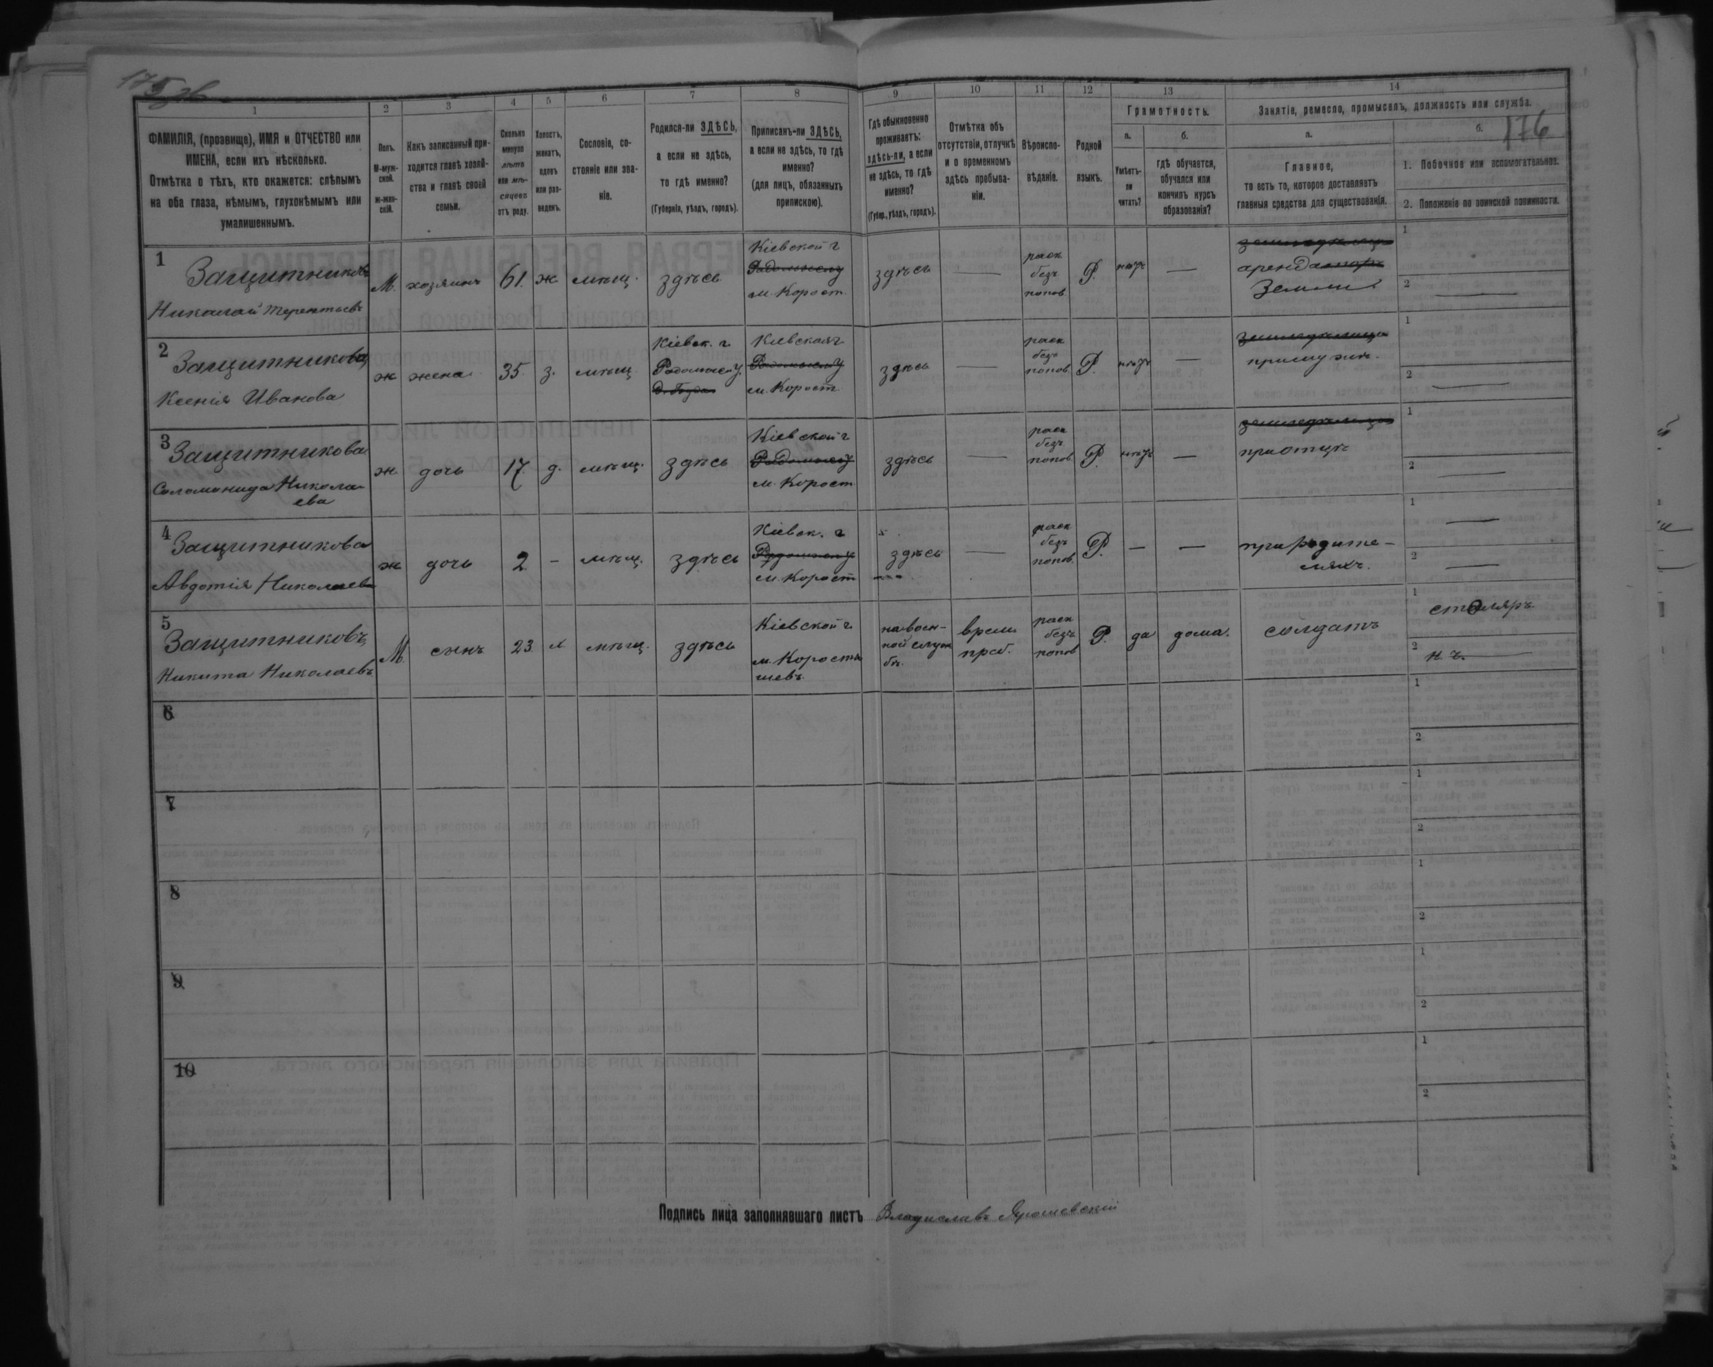 176
1
2
3
4
5
6
7
8
9
10
11
12
13
14
ФАМИЛІЯ, (прозвище), ИМЯ и ОТЧЕСТВО или
ИМЕНА, если ихъ нѣсколько.
Отмѣтка о тѣхъ, кто окажется: слѣпымъ
на оба глаза, нѣмымъ, глухонѣмымъ или
умалишеннымъ.
Полъ.
М-муж-
ской.
Ж-жен-
скій.
Какъ записанный при-
ходится главѣ хозяй-
ства и главѣ своей
семьи.
Сколько
минуло
лѣтъ
или мѣ-
сяцевъ
отъ роду.
Холостъ,
женатъ,
вдовъ
или раз-
веденъ.
Сословіе, со-
стояніе или зва-
ніе.
Родился-ли ЗДѢСЬ,
а если не здѣсь,
то гдѣ именно?
(Губернія, уѣздъ, городъ).
Приписанъ-ли ЗДѢСЬ,
а если не здѣсь, то гдѣ
именно?
(для лицъ, обязанныхъ
припискою).
Гдѣ обыкновенно
проживаетъ:
здѣсь-ли, а если
не здѣсь, то гдѣ
именно?
(Губер., уѣздъ, городъ).
Отмѣтка объ
отсутствіи, отлучкѣ
и о временномъ
здѣсь пребыва-
ніи.
Вѣроиспо-
вѣданіе.
Родной
языкъ.
Грамотность.
а.
Умѣетъ-
ли
читать?
б.
гдѣ обучается,
обучался или
кончилъ курсъ
образованія?
Занятіе, ремесло, промыселъ, должность или служба.
а.
Главное,
то есть то, которое доставляетъ
главныя средства для существованія.
б.
1. Побочное или вспомогательное.
2. Положеніе по воинской повинности.
1
Защитниковъ
Николай Терентьевъ
М. хозяинъ 61. ж мѣщ. здѣсь
Кіевской г
Радомысл у
м. Корост.
здѣсь —
раск
безъ
попов
Р. нѣтъ —
арендаторъ
Земли
1
2 —
2
Защитникова
Ксенія Иванова
ж жена 35 з. мѣщ
Кіевск. г.
Радомысл у.
Кіевская г
Радомысл у
м. Корост
здѣсь —
раск
безъ
попов
Р. нѣтъ —
при мужѣ.
1
2 —
3
Защитникова
Соломонида Никола-
ева
ж дочь 17. д. мѣщ. здѣсь
Кіевской г
Радомысл у
м. Корост
здѣсь —
раск
безъ
попов
Р. нѣтъ —
при отцѣ
1
2 —
4
Защитникова
Авдотія Николаева
ж дочь 2 - мѣщ. здѣсь
Кіевск. г
Радомысл у
м. Корост
здѣсь —
раск
безъ
попов.
Р. — —
при родите-
ляхъ.
1 —
2 —
5
Защитниковъ
Никита Николаевъ
М сынъ 23 мѣщ. здѣсь
Кіевской г.
м. Коросты
шевъ
на воен-
ной служ
бѣ.
врем.
преб.
раск
безъ
попов
Р. да дома. солдатъ
1 столяръ
2 н ч. —
6
1
2
7
1
2
8
1
2
9
1
2
10
1
2
Подпись лица заполнявшаго листъ Владиславъ Ярошевскій